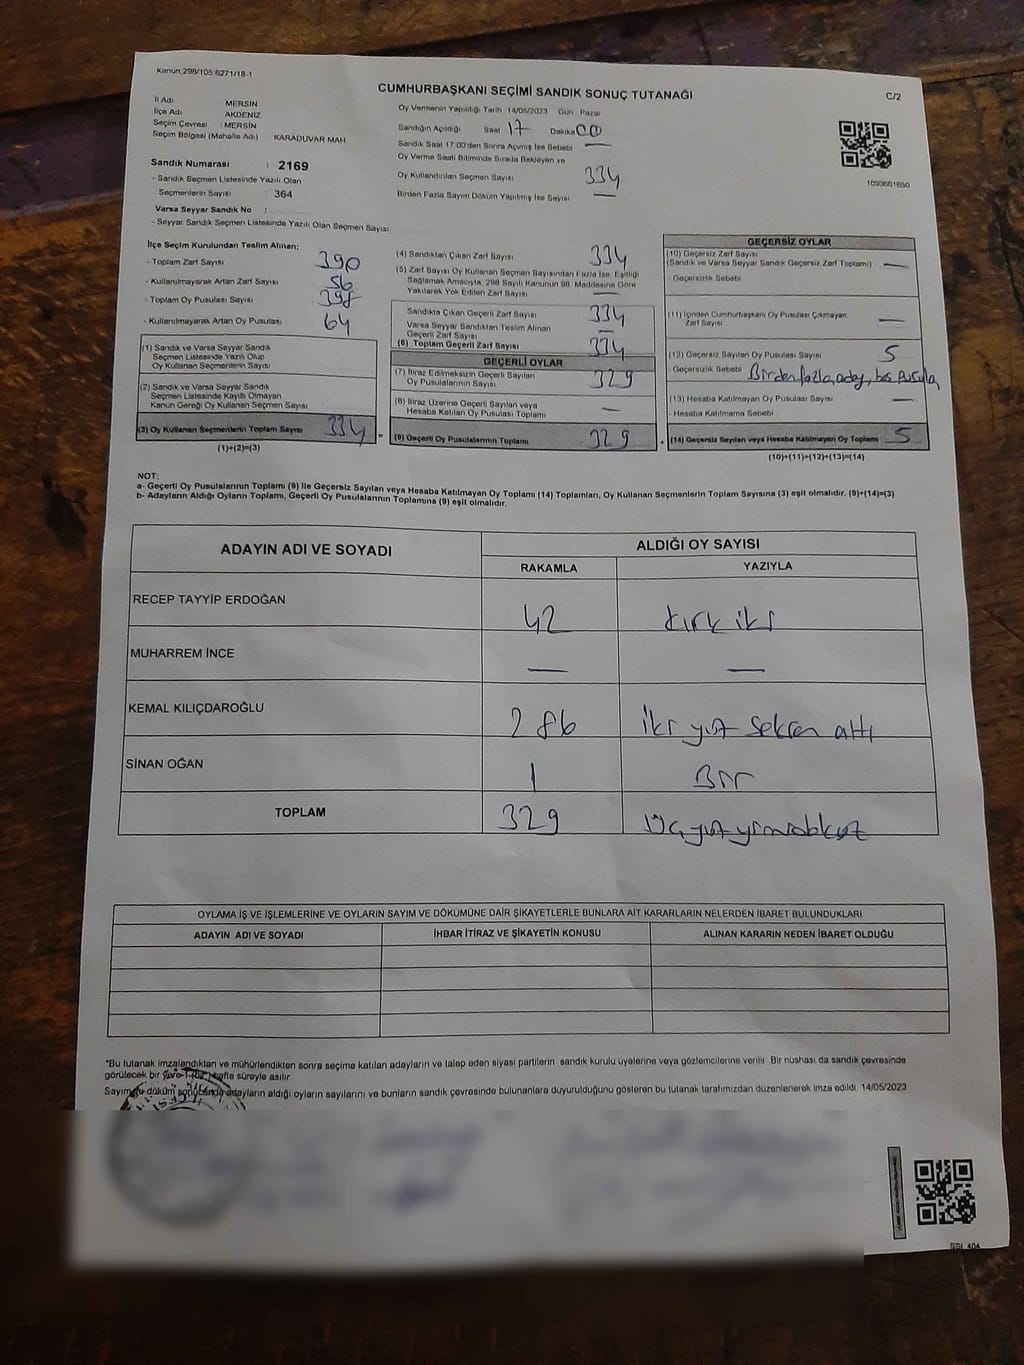 Kanun:298/105;6271/18-1
CUMHURBAŞKANI SEÇİMİ SANDIK SONUÇ TUTANAĞI
C/2
İl Adı MERSİN
İlçe Adı AKDENİZ
Seçim Çevresi : MERSİN
Seçim Bölgesi (Mahalle Adı) KARADUVAR MAH.
Oy Vermenin Yapıldığı Tarih 14/05/2023 Gün Pazar
Sandığın Açıldığı Saat 17 Dakika 00
Sandık Saat 17.00'den Sonra Açılmış İse Sebebi —
Oy Verme Saati Bitiminde Sırada Bekleyen ve
Oy Kullandırılan Seçmen Sayısı 334
Birden Fazla Sayım Döküm Yapılmış İse Sayısı —
1093661650
Sandık Numarası : 2169
- Sandık Seçmen Listesinde Yazılı Olan
Seçmenlerin Sayısı : 364
Varsa Seyyar Sandık No :
- Seyyar Sandık Seçmen Listesinde Yazılı Olan Seçmen Sayısı
İlçe Seçim Kurulundan Teslim Alınan;
- Toplam Zarf Sayısı 390
- Kullanılmayarak Artan Zarf Sayısı 56
- Toplam Oy Pusulası Sayısı 398
- Kullanılmayarak Artan Oy Pusulası 64
(1) Sandık ve Varsa Seyyar Sandık
Seçmen Listesinde Yazılı Olup
Oy Kullanan Seçmenlerin Sayısı
(2) Sandık ve Varsa Seyyar Sandık
Seçmen Listesinde Kayıtlı Olmayan
Kanun Gereği Oy Kullanan Seçmen Sayısı
(3) Oy Kullanan Seçmenlerin Toplam Sayısı 334
(1)+(2)=(3)
(4) Sandıktan Çıkan Zarf Sayısı 334
(5) Zarf Sayısı Oy Kullanan Seçmen Sayısından Fazla İse, Eşitliği
Sağlamak Amacıyla, 298 Sayılı Kanunun 98. Maddesine Göre
Yakılarak Yok Edilen Zarf Sayısı —
Sandıkta Çıkan Geçerli Zarf Sayısı 334
Varsa Seyyar Sandıktan Teslim Alınan
Geçerli Zarf Sayısı —
(6) Toplam Geçerli Zarf Sayısı 334
GEÇERLİ OYLAR
(7) İtiraz Edilmeksizin Geçerli Sayılan
Oy Pusulalarının Sayısı 329
(8) İtiraz Üzerine Geçerli Sayılan veya
Hesaba Katılan Oy Pusulası Toplamı —
(9) Geçerli Oy Pusulalarının Toplamı 329
GEÇERSİZ OYLAR
(10) Geçersiz Zarf Sayısı
(Sandık ve Varsa Seyyar Sandık Geçersiz Zarf Toplamı) —
- Geçersizlik Sebebi
(11) İçinden Cumhurbaşkanı Oy Pusulası Çıkmayan
Zarf Sayısı —
(12) Geçersiz Sayılan Oy Pusulası Sayısı 5
- Geçersizlik Sebebi Birden fazla aday, boş pusula,
(13) Hesaba Katılmayan Oy Pusulası Sayısı —
- Hesaba Katılmama Sebebi
(14) Geçersiz Sayılan veya Hesaba Katılmayan Oy Toplamı 5
(10)+(11)+(12)+(13)=(14)
NOT:
a- Geçerli Oy Pusulalarının Toplamı (9) ile Geçersiz Sayılan veya Hesaba Katılmayan Oy Toplamı (14) Toplamları, Oy Kullanan Seçmenlerin Toplam Sayısına (3) eşit olmalıdır. (9)+(14)=(3)
b- Adayların Aldığı Oyların Toplamı, Geçerli Oy Pusulalarının Toplamına (9) eşit olmalıdır.
ADAYIN ADI VE SOYADI
ALDIĞI OY SAYISI
RAKAMLA YAZIYLA
RECEP TAYYİP ERDOĞAN 42 kırk iki
MUHARREM İNCE — —
KEMAL KILIÇDAROĞLU 286 iki yüz seksen altı
SİNAN OĞAN 1 Bir
TOPLAM 329 Üç yüz yirmidokuz
OYLAMA İŞ VE İŞLEMLERİNE VE OYLARIN SAYIM VE DÖKÜMÜNE DAİR ŞİKAYETLERLE BUNLARA AİT KARARLARIN NELERDEN İBARET BULUNDUKLARI
ADAYIN ADI VE SOYADI İHBAR İTİRAZ VE ŞİKAYETİN KONUSU ALINAN KARARIN NEDEN İBARET OLDUĞU
*Bu tutanak imzalandıktan ve mühürlendikten sonra seçime katılan adayların ve talep eden siyasi partilerin sandık kurulu üyelerine veya gözlemcilerine verilir. Bir nüshası da sandık çevresinde
görülecek bir yere 1 (bir) hafta süreyle asılır.
Sayım ve döküm sonucunda adayların aldığı oyların sayılarını ve bunların sandık çevresinde bulunanlara duyurulduğunu gösteren bu tutanak tarafımızdan düzenlenerek imza edildi. 14/05/2023
SSI_404